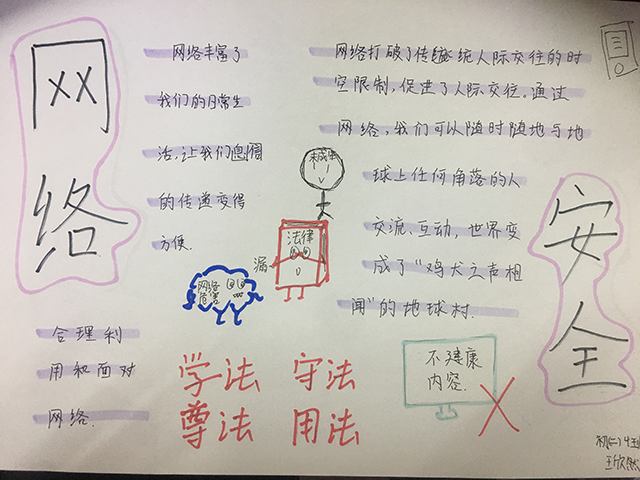 网
络
网络丰富了
我们的日常生
活,让我们
的传递变得
方便.
网络打破了传统人际交往的时
空限制,促进了人际交往.通过
网络,我们可以随时随地与地
球上任何角落的人
交流、互动,世界变
成了"鸡犬之声相
闻"的地球村.
安
全
法律
网络
危害
合理利
用和面对
网络.
学法 守法
尊法 用法
不健康
内容.
王欣然